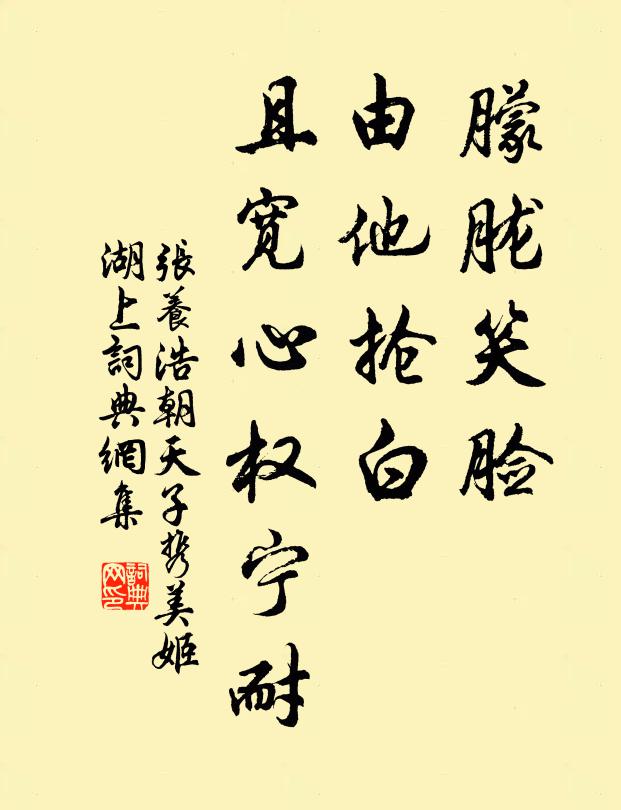 朦胧笑脸
由他抢白
且宽心权宁耐
張養浩朝天子携美姬
湖上詞典網集
詞典网印